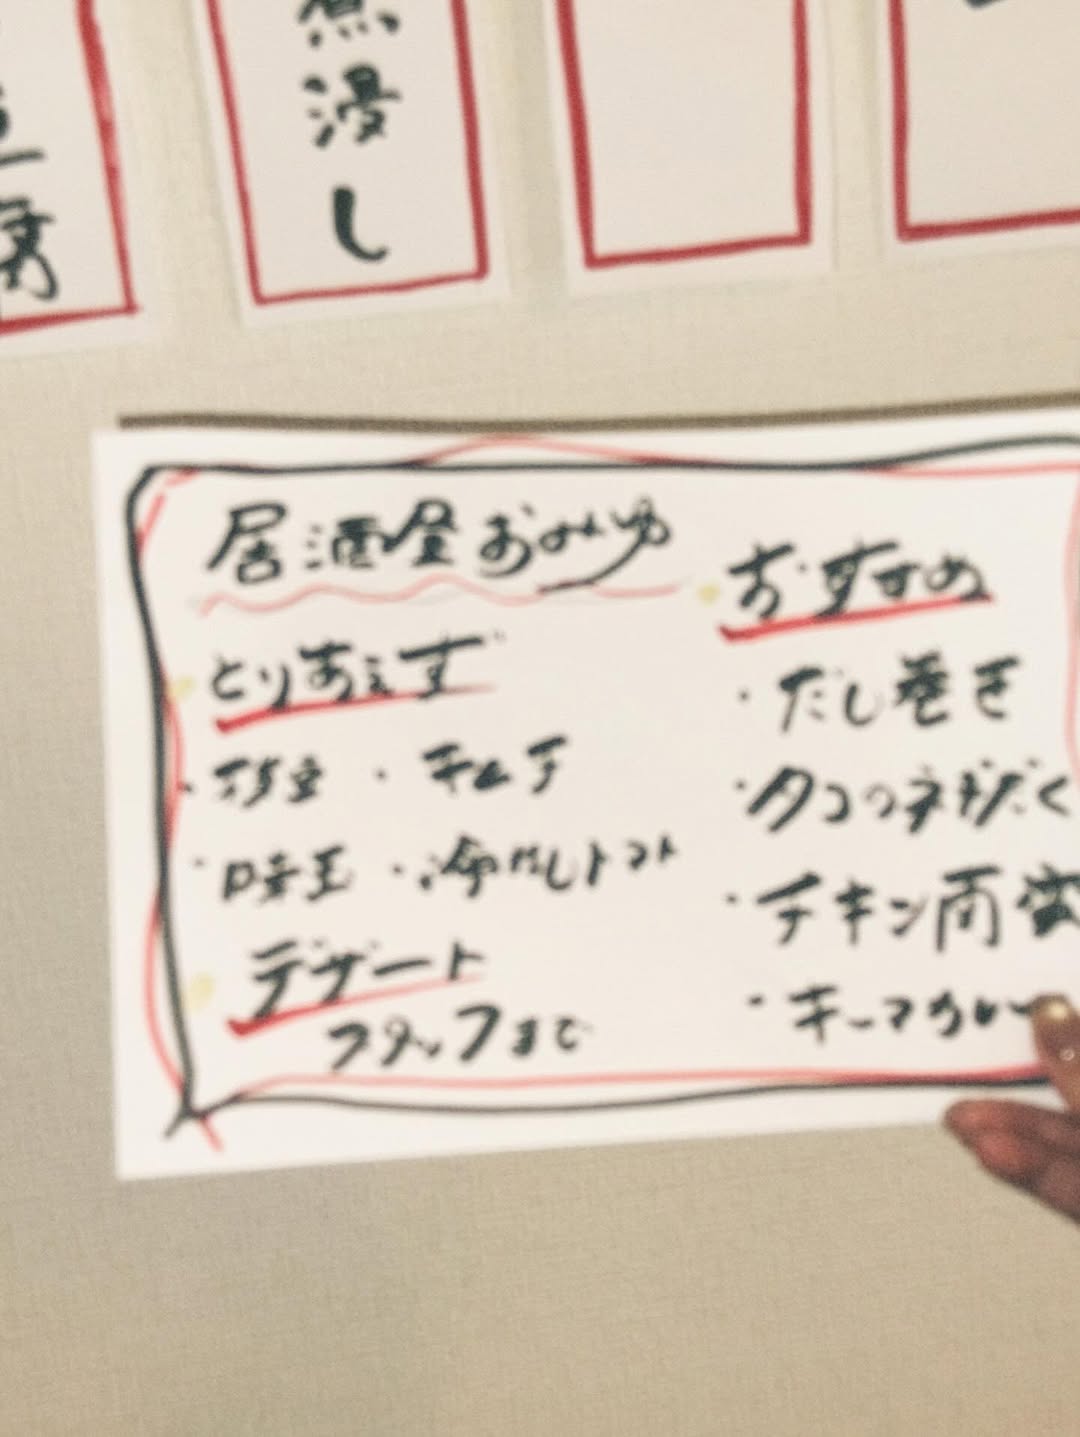 煮浸し
居酒屋おみゆ
とりあえず
・枝豆 ・キムチ
・味玉 ・冷やしトマト
デザート
スタッフまで
おすすめ
・だし巻き
・タコの
・チキン南蛮
・キーマカレー